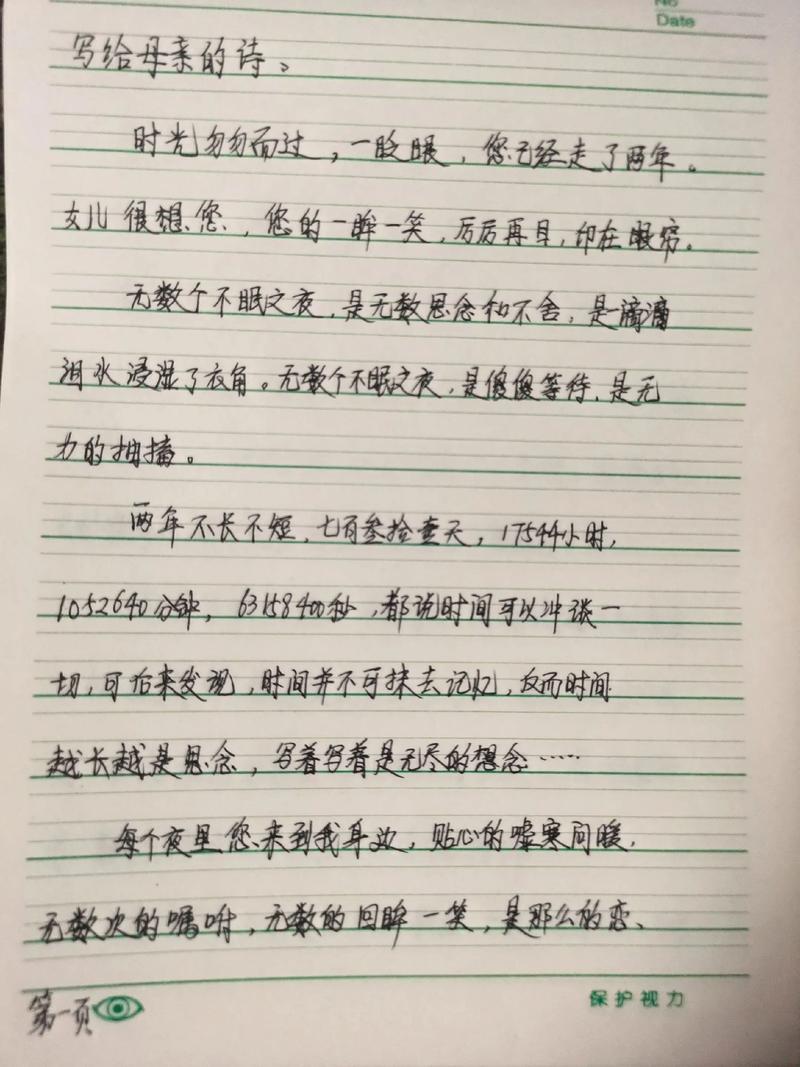 No
Date
写给母亲的诗。
时光匆匆而过，一眨眼，您已经走了两年。
女儿很想您，您的一眸一笑，厉厉再目，印在眼帘。
无数个不眠之夜，是无数思念和不舍，是一滴滴
泪水浸湿了衣角。无数个不眠之夜，是傻傻等待，是无
力的抽搐。
两年不长不短，七百叁拾壹天，17544小时，
1052640分钟，63158400秒，都说时间可以冲谈一
切，可后来发现，时间并不可抹去记忆，反而时间
越长越是思念，写着写着是无尽的想念……
每个夜里您来到我身边，贴心的嘘寒问暖，
无数次的嘱咐，无数的回眸一笑，是那么的恋、
第一页
保护视力